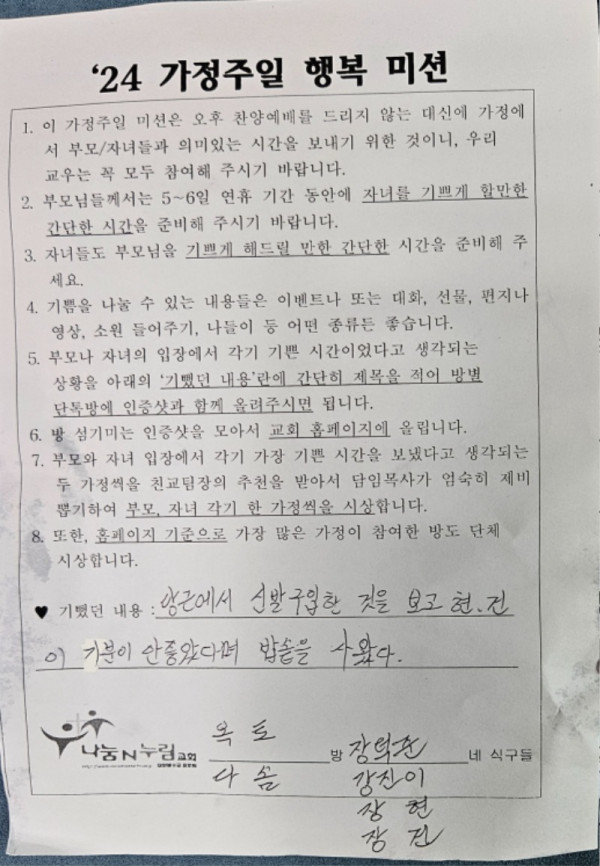 ‘24 가정주일 행복 미션
1. 이 가정주일 미션은 오후 찬양예배를 드리지 않는 대신에 가정에
서 부모/자녀들과 의미있는 시간을 보내기 위한 것이니, 우리
교우는 꼭 모두 참여해 주시기 바랍니다.
2. 부모님들께서는 5~6일 연휴 기간 동안에 자녀를 기쁘게 할만한
간단한 시간을 준비해 주시기 바랍니다.
3. 자녀들도 부모님을 기쁘게 해드릴 만한 간단한 시간을 준비해 주
세요.
4. 기쁨을 나눌 수 있는 내용들은 이벤트나 또는 대화, 선물, 편지나
영상, 소원 들어주기, 나들이 등 어떤 종류든 좋습니다.
5. 부모나 자녀의 입장에서 각기 기쁜 시간이었다고 생각되는
상황을 아래의 ‘기뻤던 내용’란에 간단히 제목을 적어 방별
단톡방에 인증샷과 함께 올려주시면 됩니다.
6. 방 섬기미는 인증샷을 모아서 교회 홈페이지에 올립니다.
7. 부모와 자녀 입장에서 각기 가장 기쁜 시간을 보냈다고 생각되는
두 가정씩을 친교팀장의 추천을 받아서 담임목사가 엄숙히 제비
뽑기하여 부모, 자녀 각기 한 가정씩을 시상합니다.
8. 또한, 홈페이지 기준으로 가장 많은 가정이 참여한 방도 단체
시상합니다.
♥ 기뻤던 내용 : 당근에서 신발구입한 것을 보고 현.건
이 기분이 안좋았다며 밥솥을 사왔다.
나눔N누림교회 옥토 방 장덕준 네 식구들
다솜 강진이
장 현
장 건